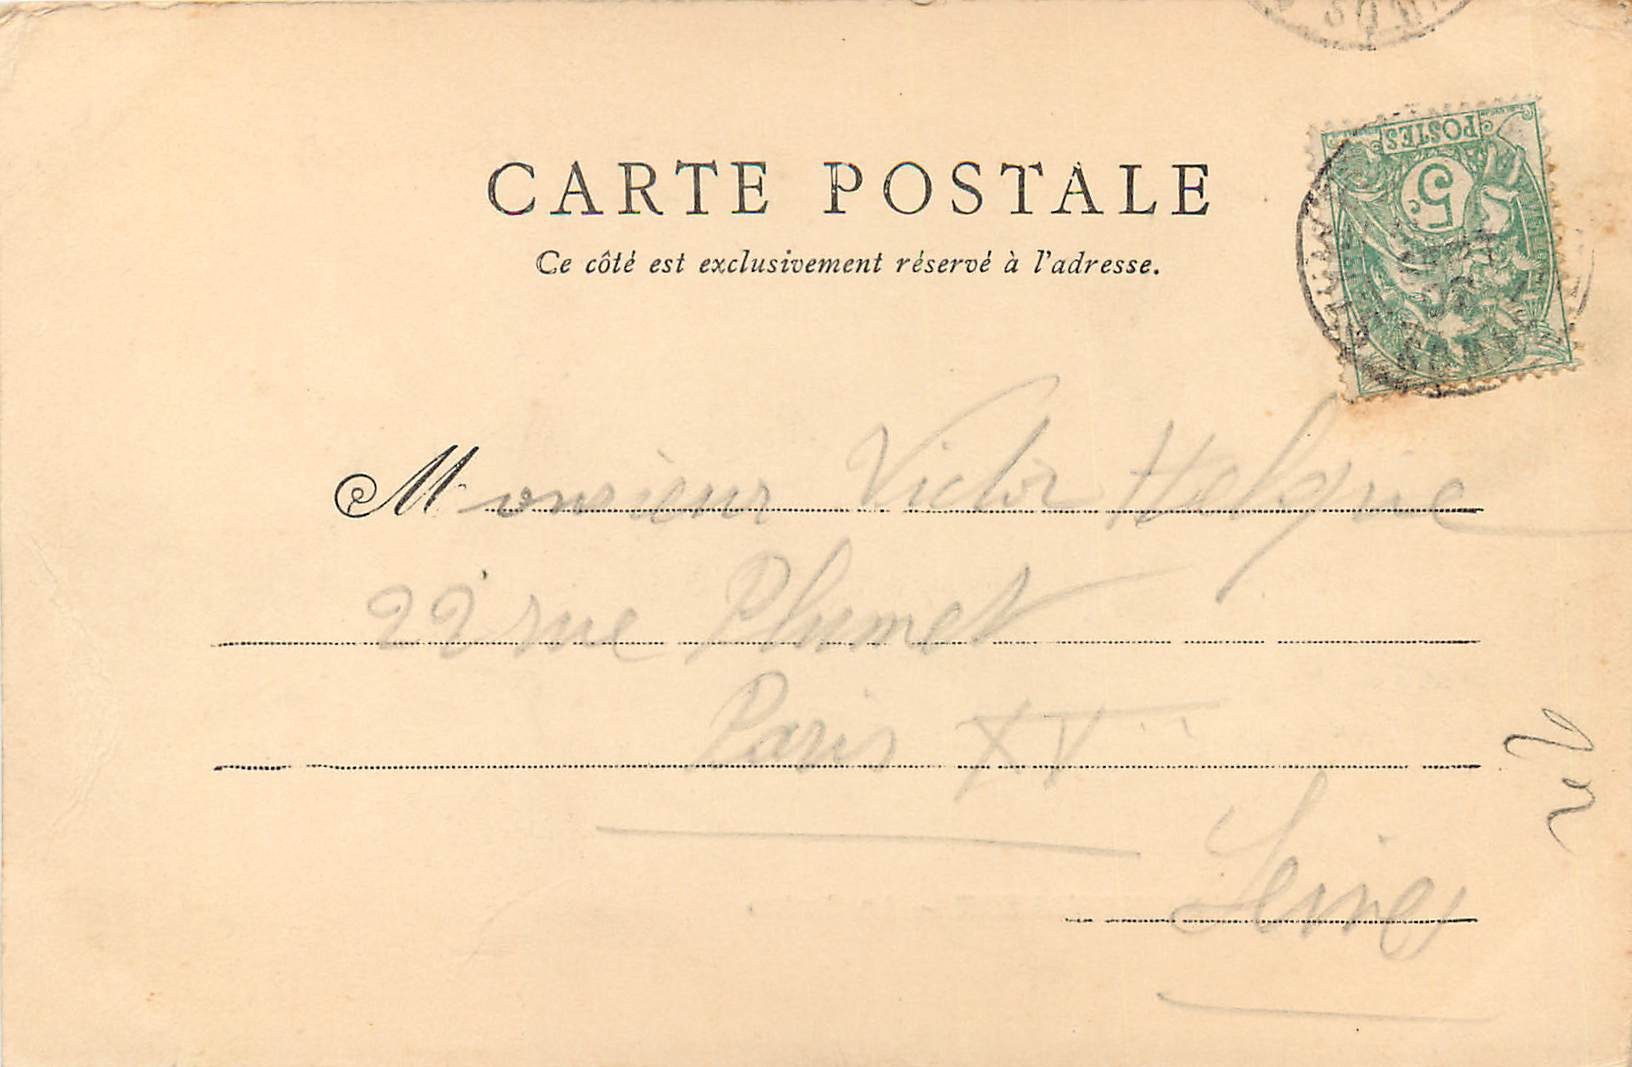 CARTE POSTALE
Ce côté est exclusivement réservé à l'adresse.
POSTES
5
Monsieur Victor Helque
22 rue Plumet
Paris XV
Seine